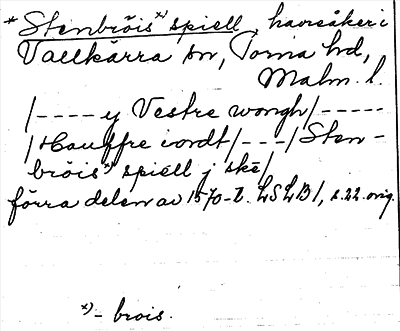 * Stenbröis x) spiell, havreåker i
Vallkärra sn, Torna hd,
Malm. l.
/---- y Vestre wongh/-----
/Hauffre iordt/---/Sten-
bröis x) spiell j skē/
förra delen av 1570-t. LSLB 1, s. 22. orig.
x) - brois.